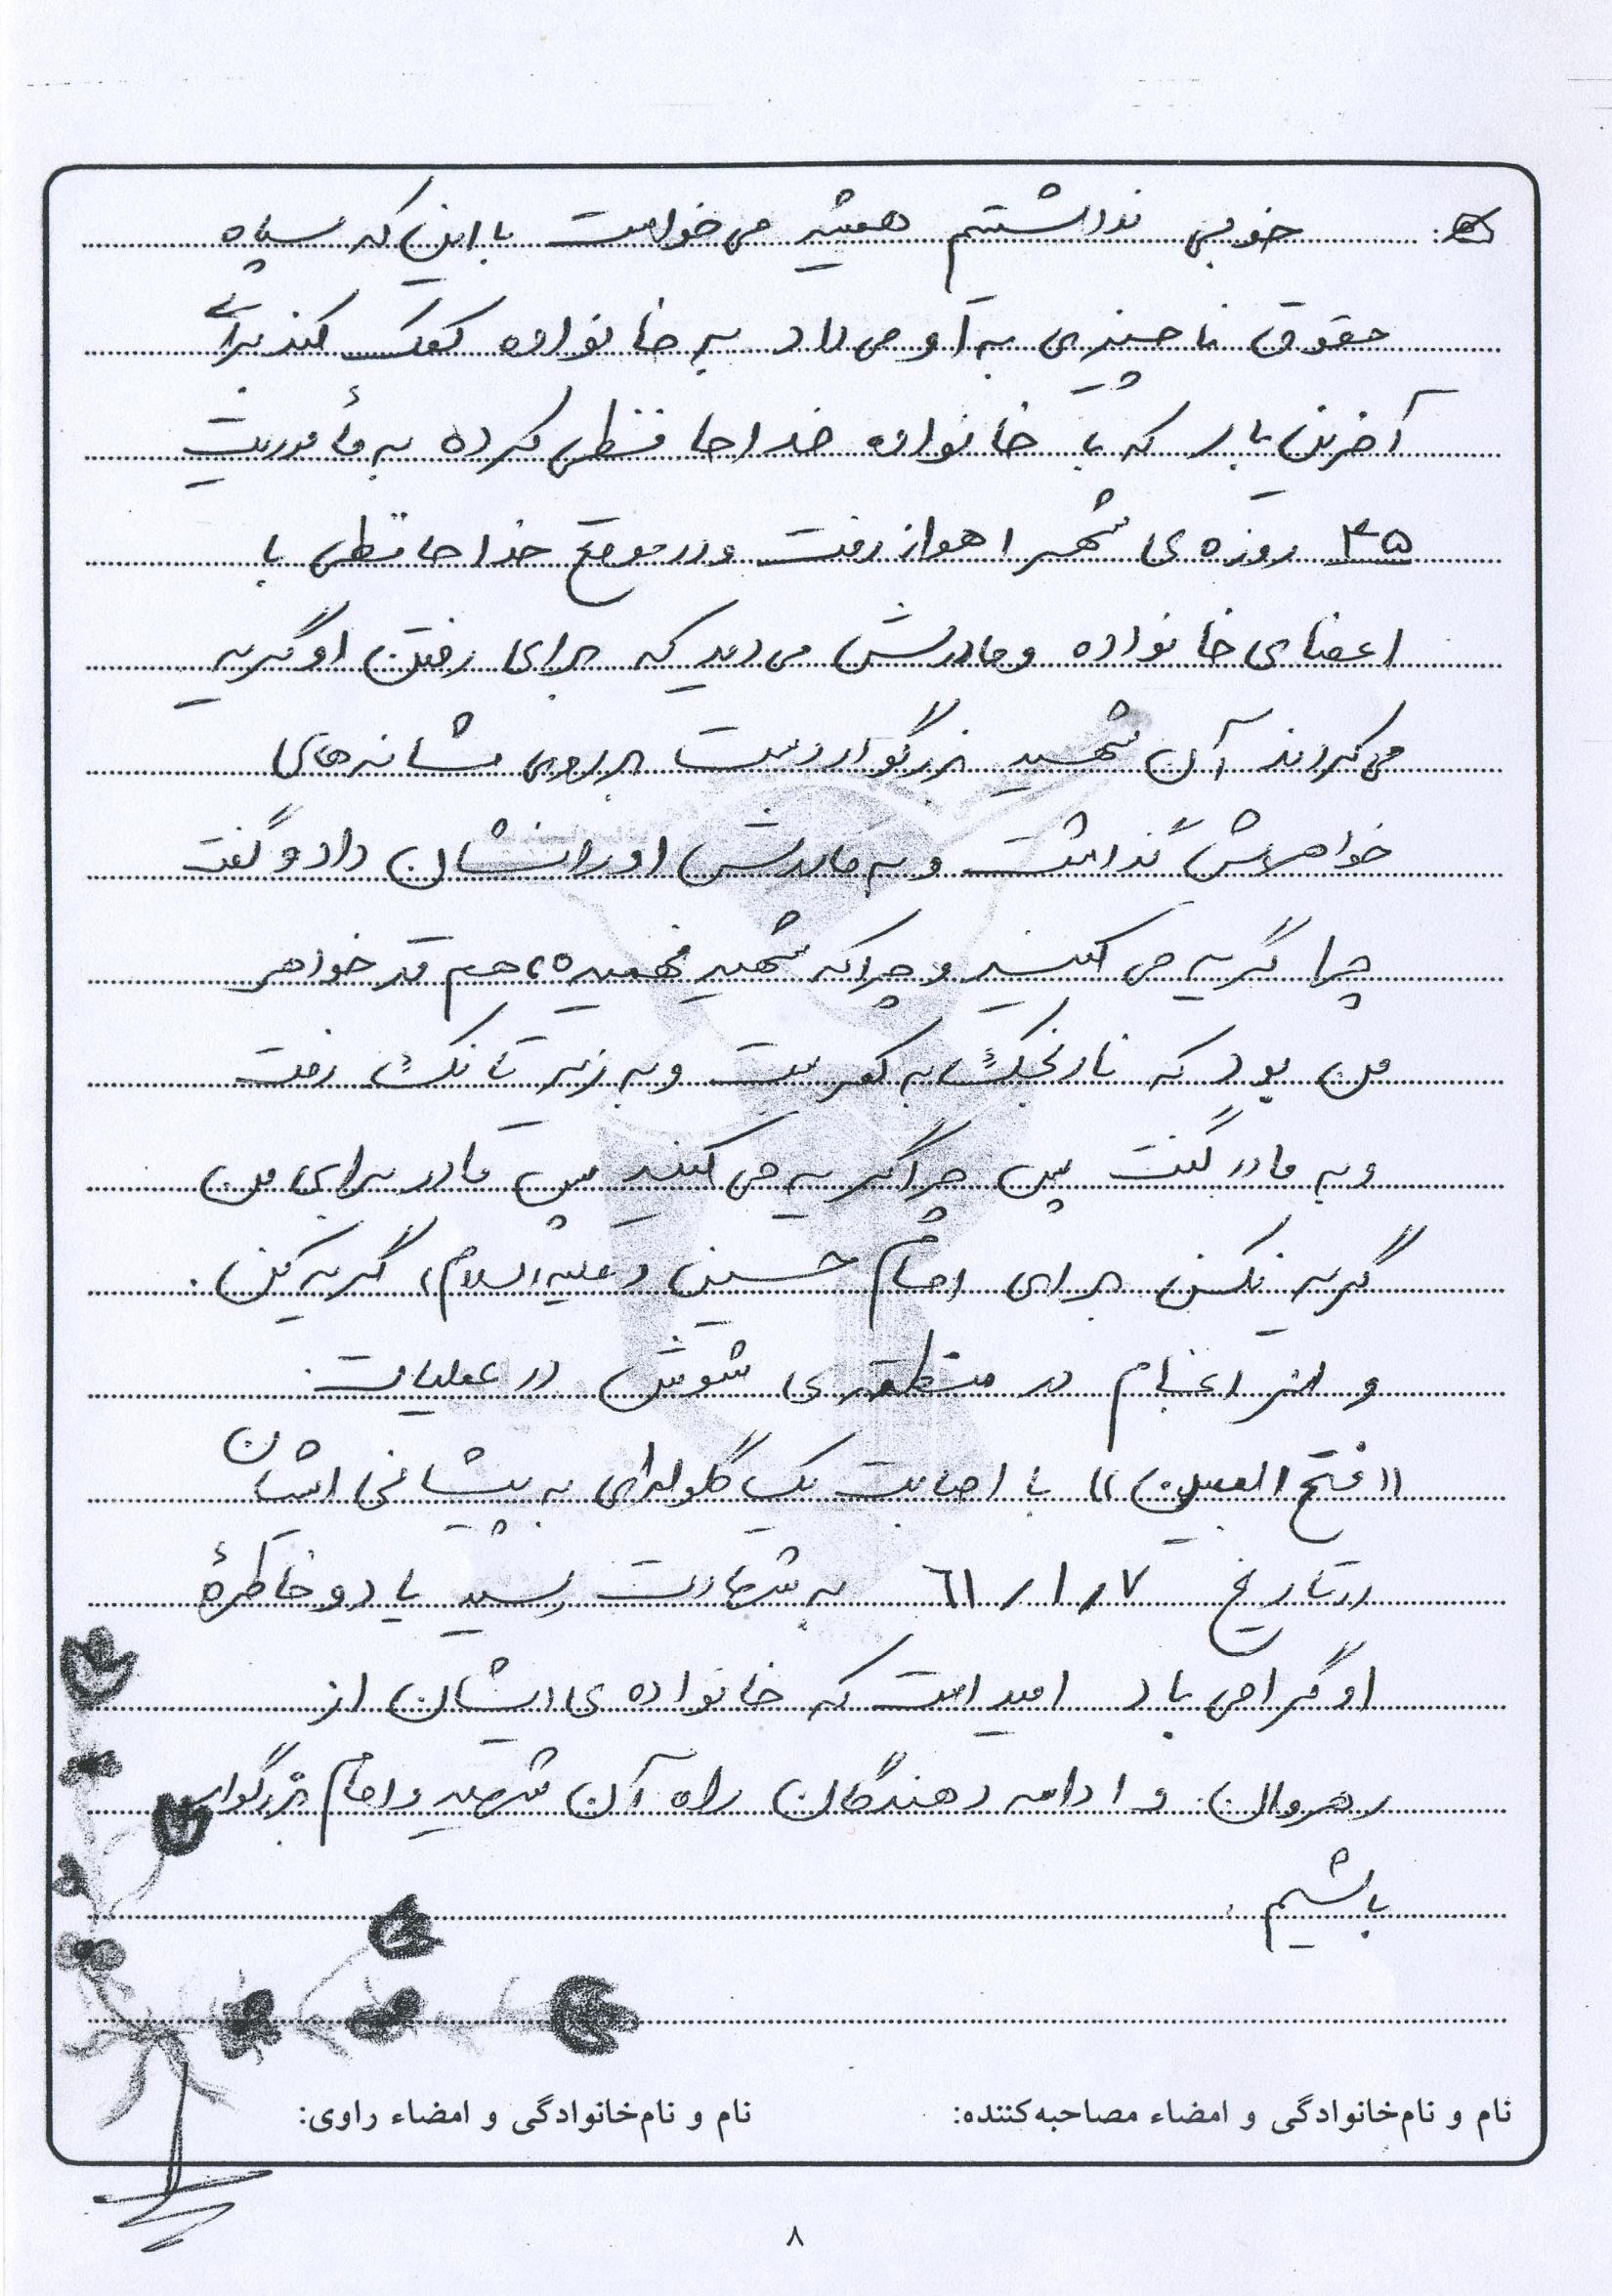 خوبی نداشتیم همیشه می‌خواست با این که سپاه
حقوق ناچیزی به او می‌داد به خانواده کمک کند برای
آخرین بار که با خانواده خداحافظی کرده به مأموریت
۴۵ روزه‌ی شهر اهواز رفت و در موقع خداحافظی با
اعضای خانواده و مادرش می‌دید که برای رفتن او گریه
می‌کردند آن شهید بزرگوار دست بر روی شانه‌های
خواهرش گذاشت و به مادرش او را نشان داد و گفت
چرا گریه می‌کنید و چرا که شهید فهمیده، هم قد خواهر
من بود که نارنجک به کمر بست و به زیر تانک رفت
و به مادر گفت پس چرا گریه می‌کنید پس مادر برای من
گریه نکن برای امام حسین (علیه السلام) گریه کن.
و سرانجام در منطقه‌ی شوش در عملیات
((فتح المبین)) با اصابت یک گلوله‌ای به پیشانی اشان
در تاریخ ۶۱/۱/۷ به شهادت رسید یاد و خاطرهٔ
او گرامی باد امید است که خانواده‌ی ایشان از
رهروان و ادامه دهندگان راه آن شهید و امام بزرگوار
باشیم.
نام و نام‌خانوادگی و امضاء مصاحبه‌کننده: نام و نام‌خانوادگی و امضاء راوی:
۸